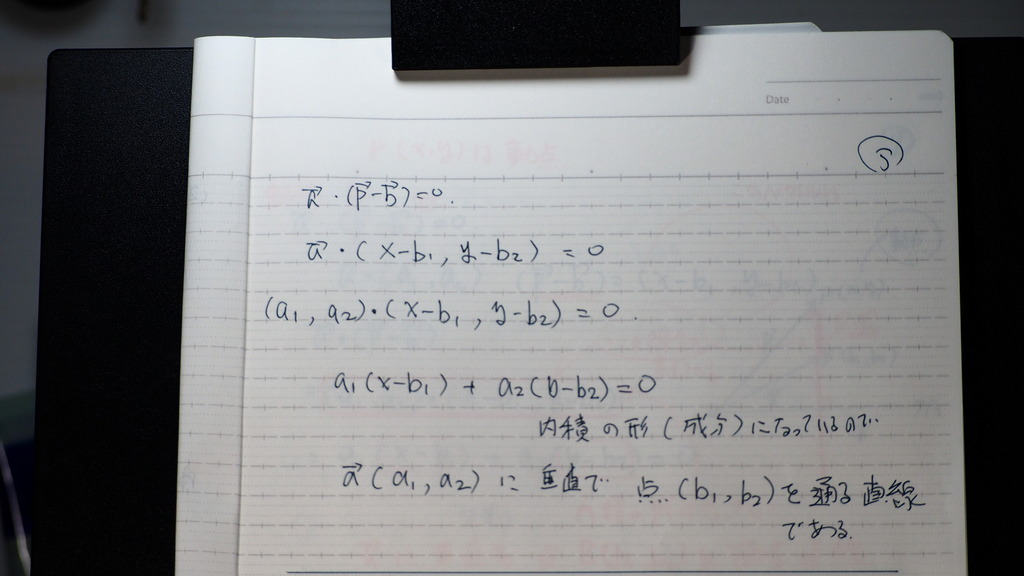 Date
⑤
a⃗・(p⃗-b⃗)=0.
a⃗・(x-b₁, y-b₂) = 0
(a₁, a₂)・(x-b₁, y-b₂) = 0.
a₁(x-b₁) + a₂(b-b₂)=0
内積の形(成分)になっているので
a⃗(a₁, a₂)に垂直で 点(b₁, b₂)を通る直線
である.